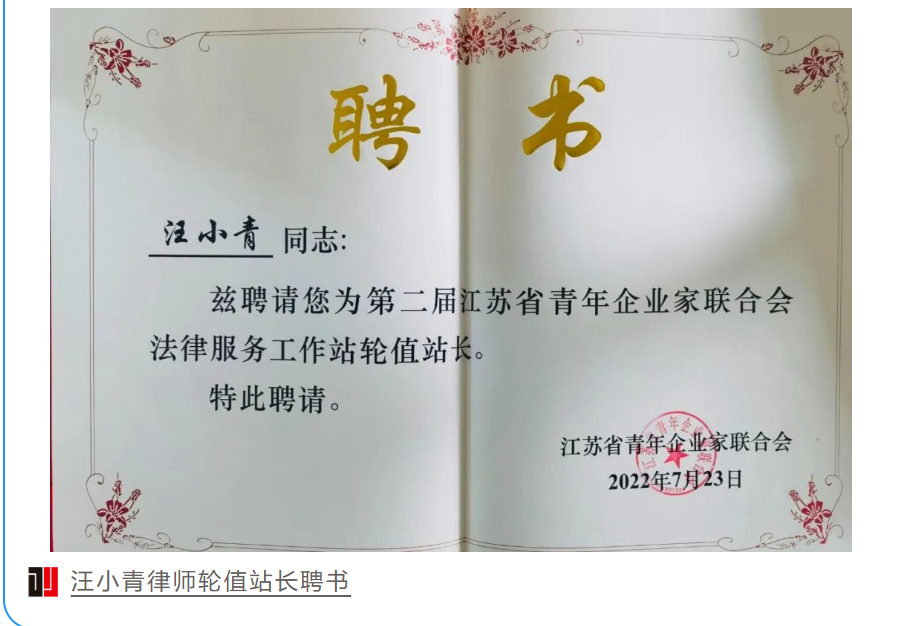 聘书
汪小青 同志:
兹聘请您为第二届江苏省青年企业家联合会
法律服务工作站轮值站长。
特此聘请。
江苏省青年企业家联合会
2022年7月23日
汪小青律师轮值站长聘书